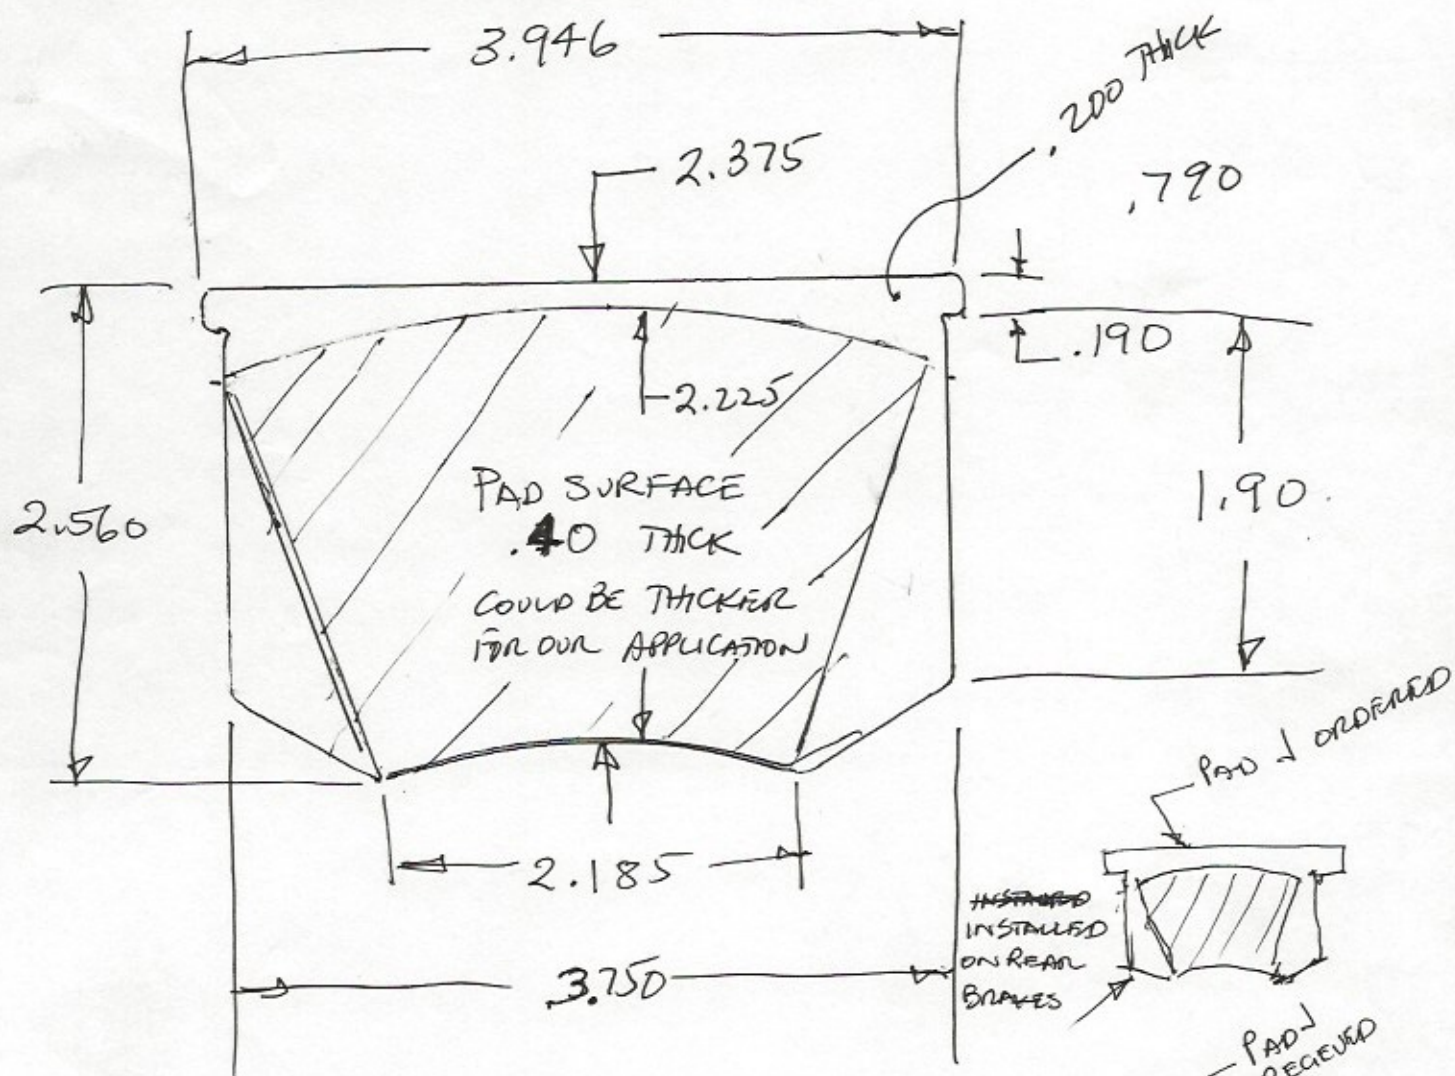 3.946
.200 THICK
2.375
.790
.190
2.225
2.560
PAD SURFACE
.40 THICK
COULD BE THICKER
FOR OUR APPLICATION
1.90
PAD I ORDERED
2.185
INSTALLED
ON REAR
BRAKES
3.750
PAD I
RECEVED